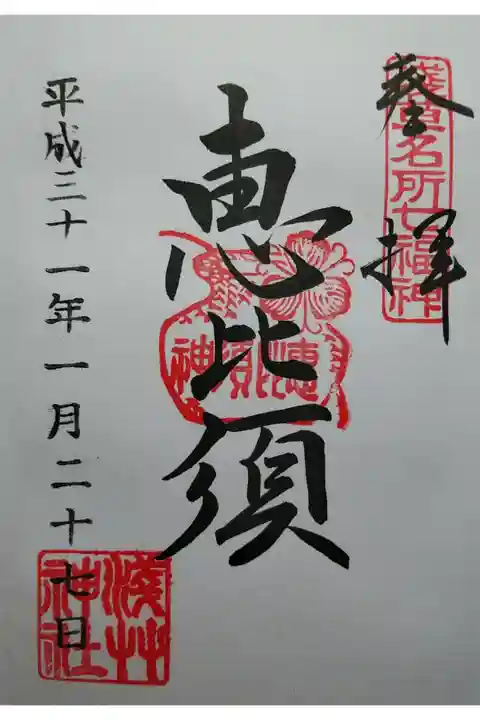 奉拝
淺草名所七福神
恵比須
恵比須神
平成三十一年一月二十七日
淺草神社